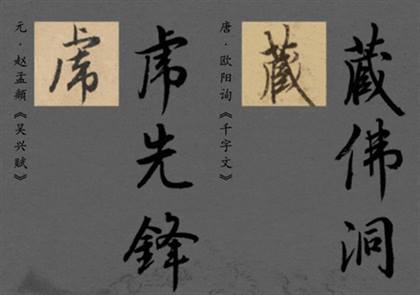 藏佛洞
藏
唐·欧阳询《千字文》
虎先锋
虎
元·赵孟頫《吴兴赋》